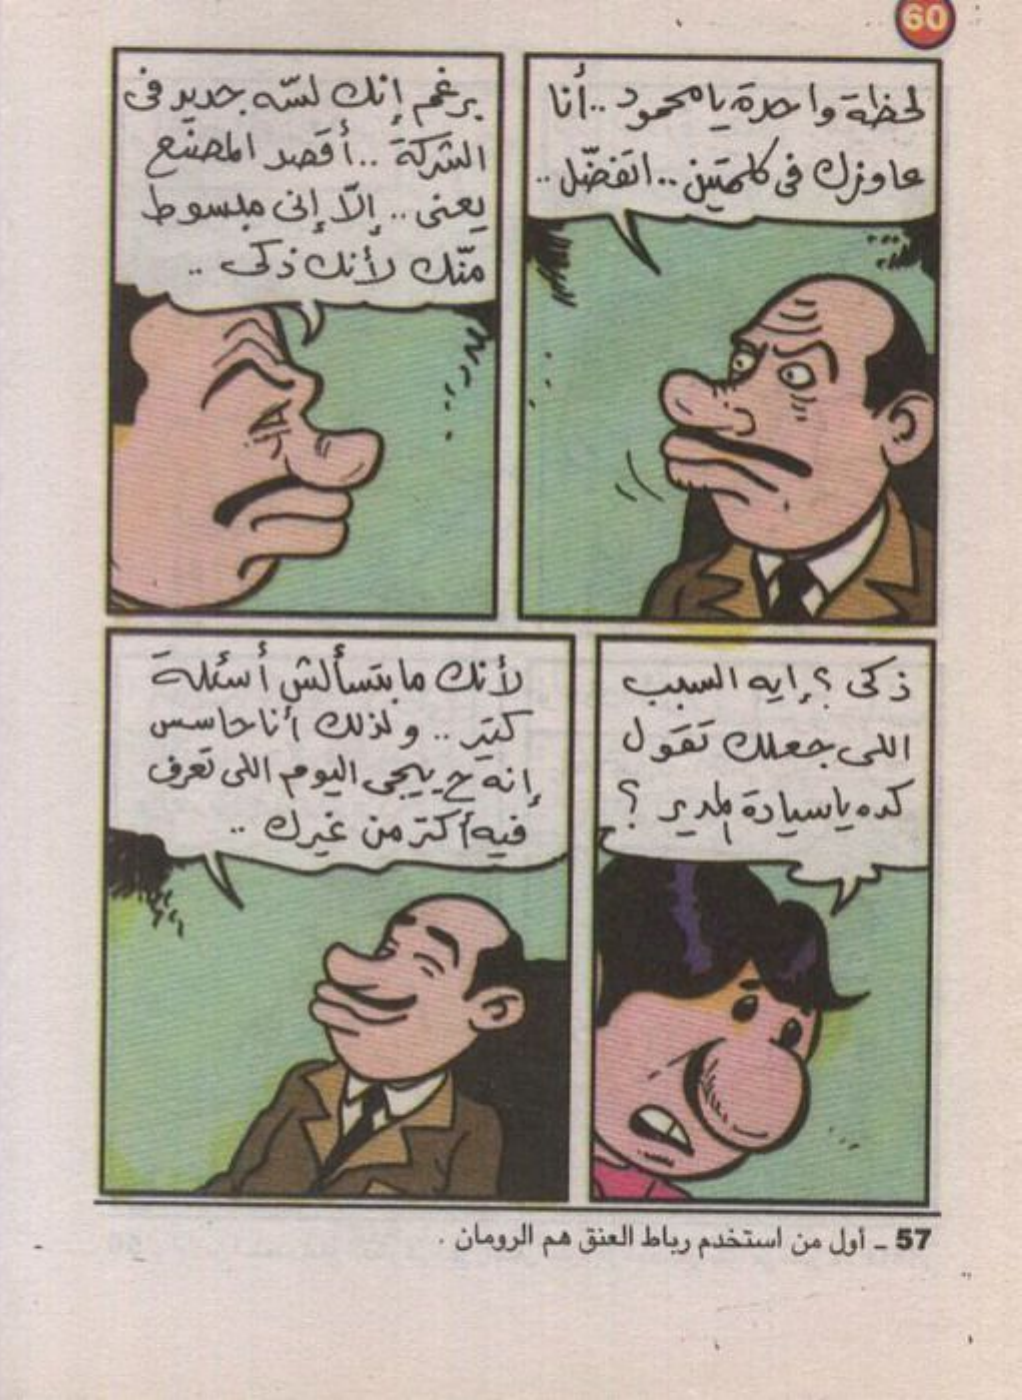 60
لحظة واحدة يا محمود .. أنا
عاوزك فى كلمتين .. اتفضّل ..
برغم إنك لسّه جديد فى
الشركة .. أقصد المصنع
يعنى .. إلّا إنى مبسوط
منّك لأنك ذكى ..
ذكى ؟ إيه السبب
اللى جعلك تقول
كده يا سيادة المدير ؟
لأنك ما بتسألش أسئلة
كتير .. ولذلك أنا حاسس
إنه ح ييجى اليوم اللى تعرف
فيه أكتر من غيرك ..
57 ـ أول من استخدم رباط العنق هم الرومان .